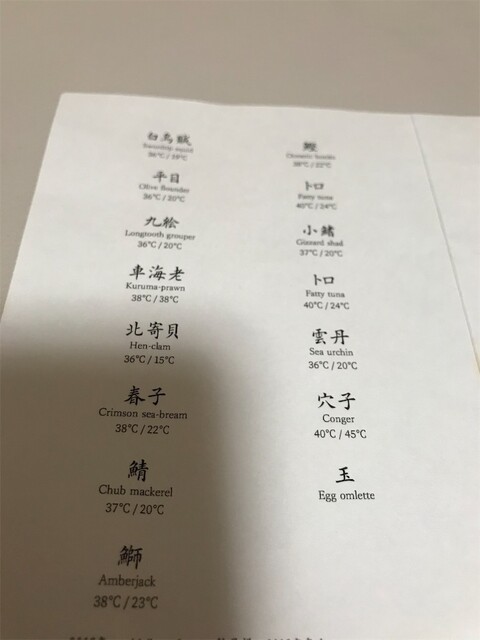 白烏賊
36℃ / 18℃
平目
Olive flounder
36℃ / 20℃
九絵
Longtooth grouper
36℃ / 20℃
車海老
Kuruma-prawn
38℃ / 38℃
北寄貝
Hen-clam
36℃ / 15℃
春子
Crimson sea-bream
38℃ / 22℃
鯖
Chub mackerel
37℃ / 20℃
鰤
Amberjack
38℃ / 23℃
鰹
Oceanic bonito
38℃ / 22℃
トロ
Fatty tuna
40℃ / 24℃
小鰭
Gizzard shad
37℃ / 20℃
トロ
Fatty tuna
40℃ / 24℃
雲丹
Sea urchin
36℃ / 20℃
穴子
Conger
40℃ / 45℃
玉
Egg omlette